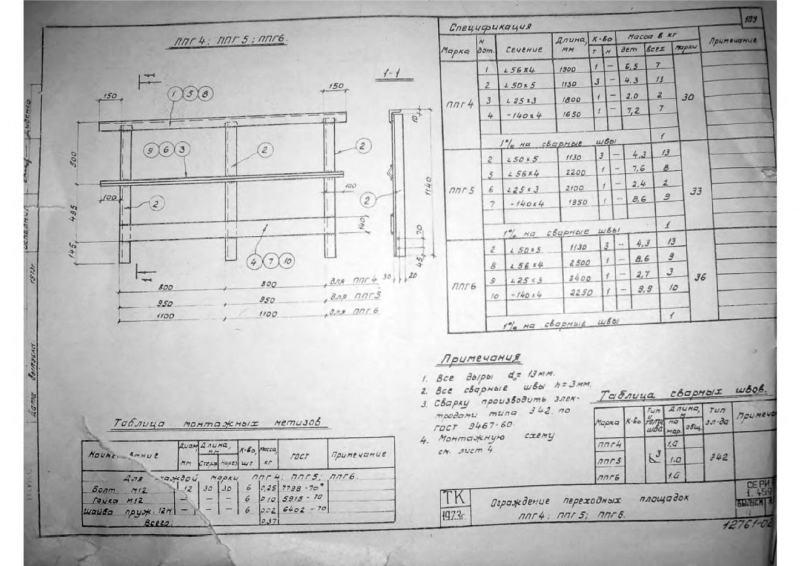 109
ППГ4; ППГ5; ППГ6.
1-1
150
150
1 5 8
9 6 3
2
2
2
2
4 7 10
500
485
145
100
100
140
10
1140
70
45
30
20
800 800 для ППГ4
950 950 для ППГ5
1100 1100 для ППГ6
Спецификация
Марка
N дет.
Сечение
Длина, мм
К-во
т н
Масса в кг
дет всех марки
Примечание
ППГ4
1 L56x4 1900 1 – 6,5 7
2 L50x5 1130 3 – 4,3 13
3 L25x3 1800 1 – 2,0 2
4 -140x4 1650 1 – 7,2 7
1% на сварные швы 1
30
ППГ5
2 L50x5 1130 3 – 4,3 13
5 L56x4 2200 1 – 7,6 8
6 L25x3 2100 1 – 2,4 2
7 -140x4 1950 1 – 8,6 9
1% на сварные швы 1
33
ППГ6
2 L50x5 1130 3 – 4,3 13
8 L56x4 2500 1 – 8,6 9
9 L25x3 2400 1 – 2,7 3
10 -140x4 2250 1 – 9,9 10
1% на сварные швы 1
36
Примечания
1. Все дыры d=13мм.
2. Все сварные швы h=3мм.
3. Сварку производить элек-
тродами типа Э42 по
ГОСТ 9467-60.
4. Монтажную схему
см. лист 4
Таблица сварных швов.
Марка К-во. Тип и катет шва Длина, м на мар. общ. Тип эл-да Примеча
ППГ4 1.0
ППГ5 3 1.0 Э42
ППГ6 1.0
Таблица монтажных метизов
Диам мм
Длина, мм
К-во, шт.
Масса, кг
ГОСТ
Примечание
Для каждой марки ППГ4; ППГ5; ППГ6.
Болт М12 12 30 30 6 0,25 7798-70
Гайка М12 – – – 6 0,10 5915-70
Шайба пруж. 12Н – – – 6 0,02 6402-70
Всего: 0,37
ТК
1973г
Ограждение переходных площадок
ППГ4; ППГ5; ППГ6.
СЕРИ
1.459
12761-02
Дата выпуска 1973г